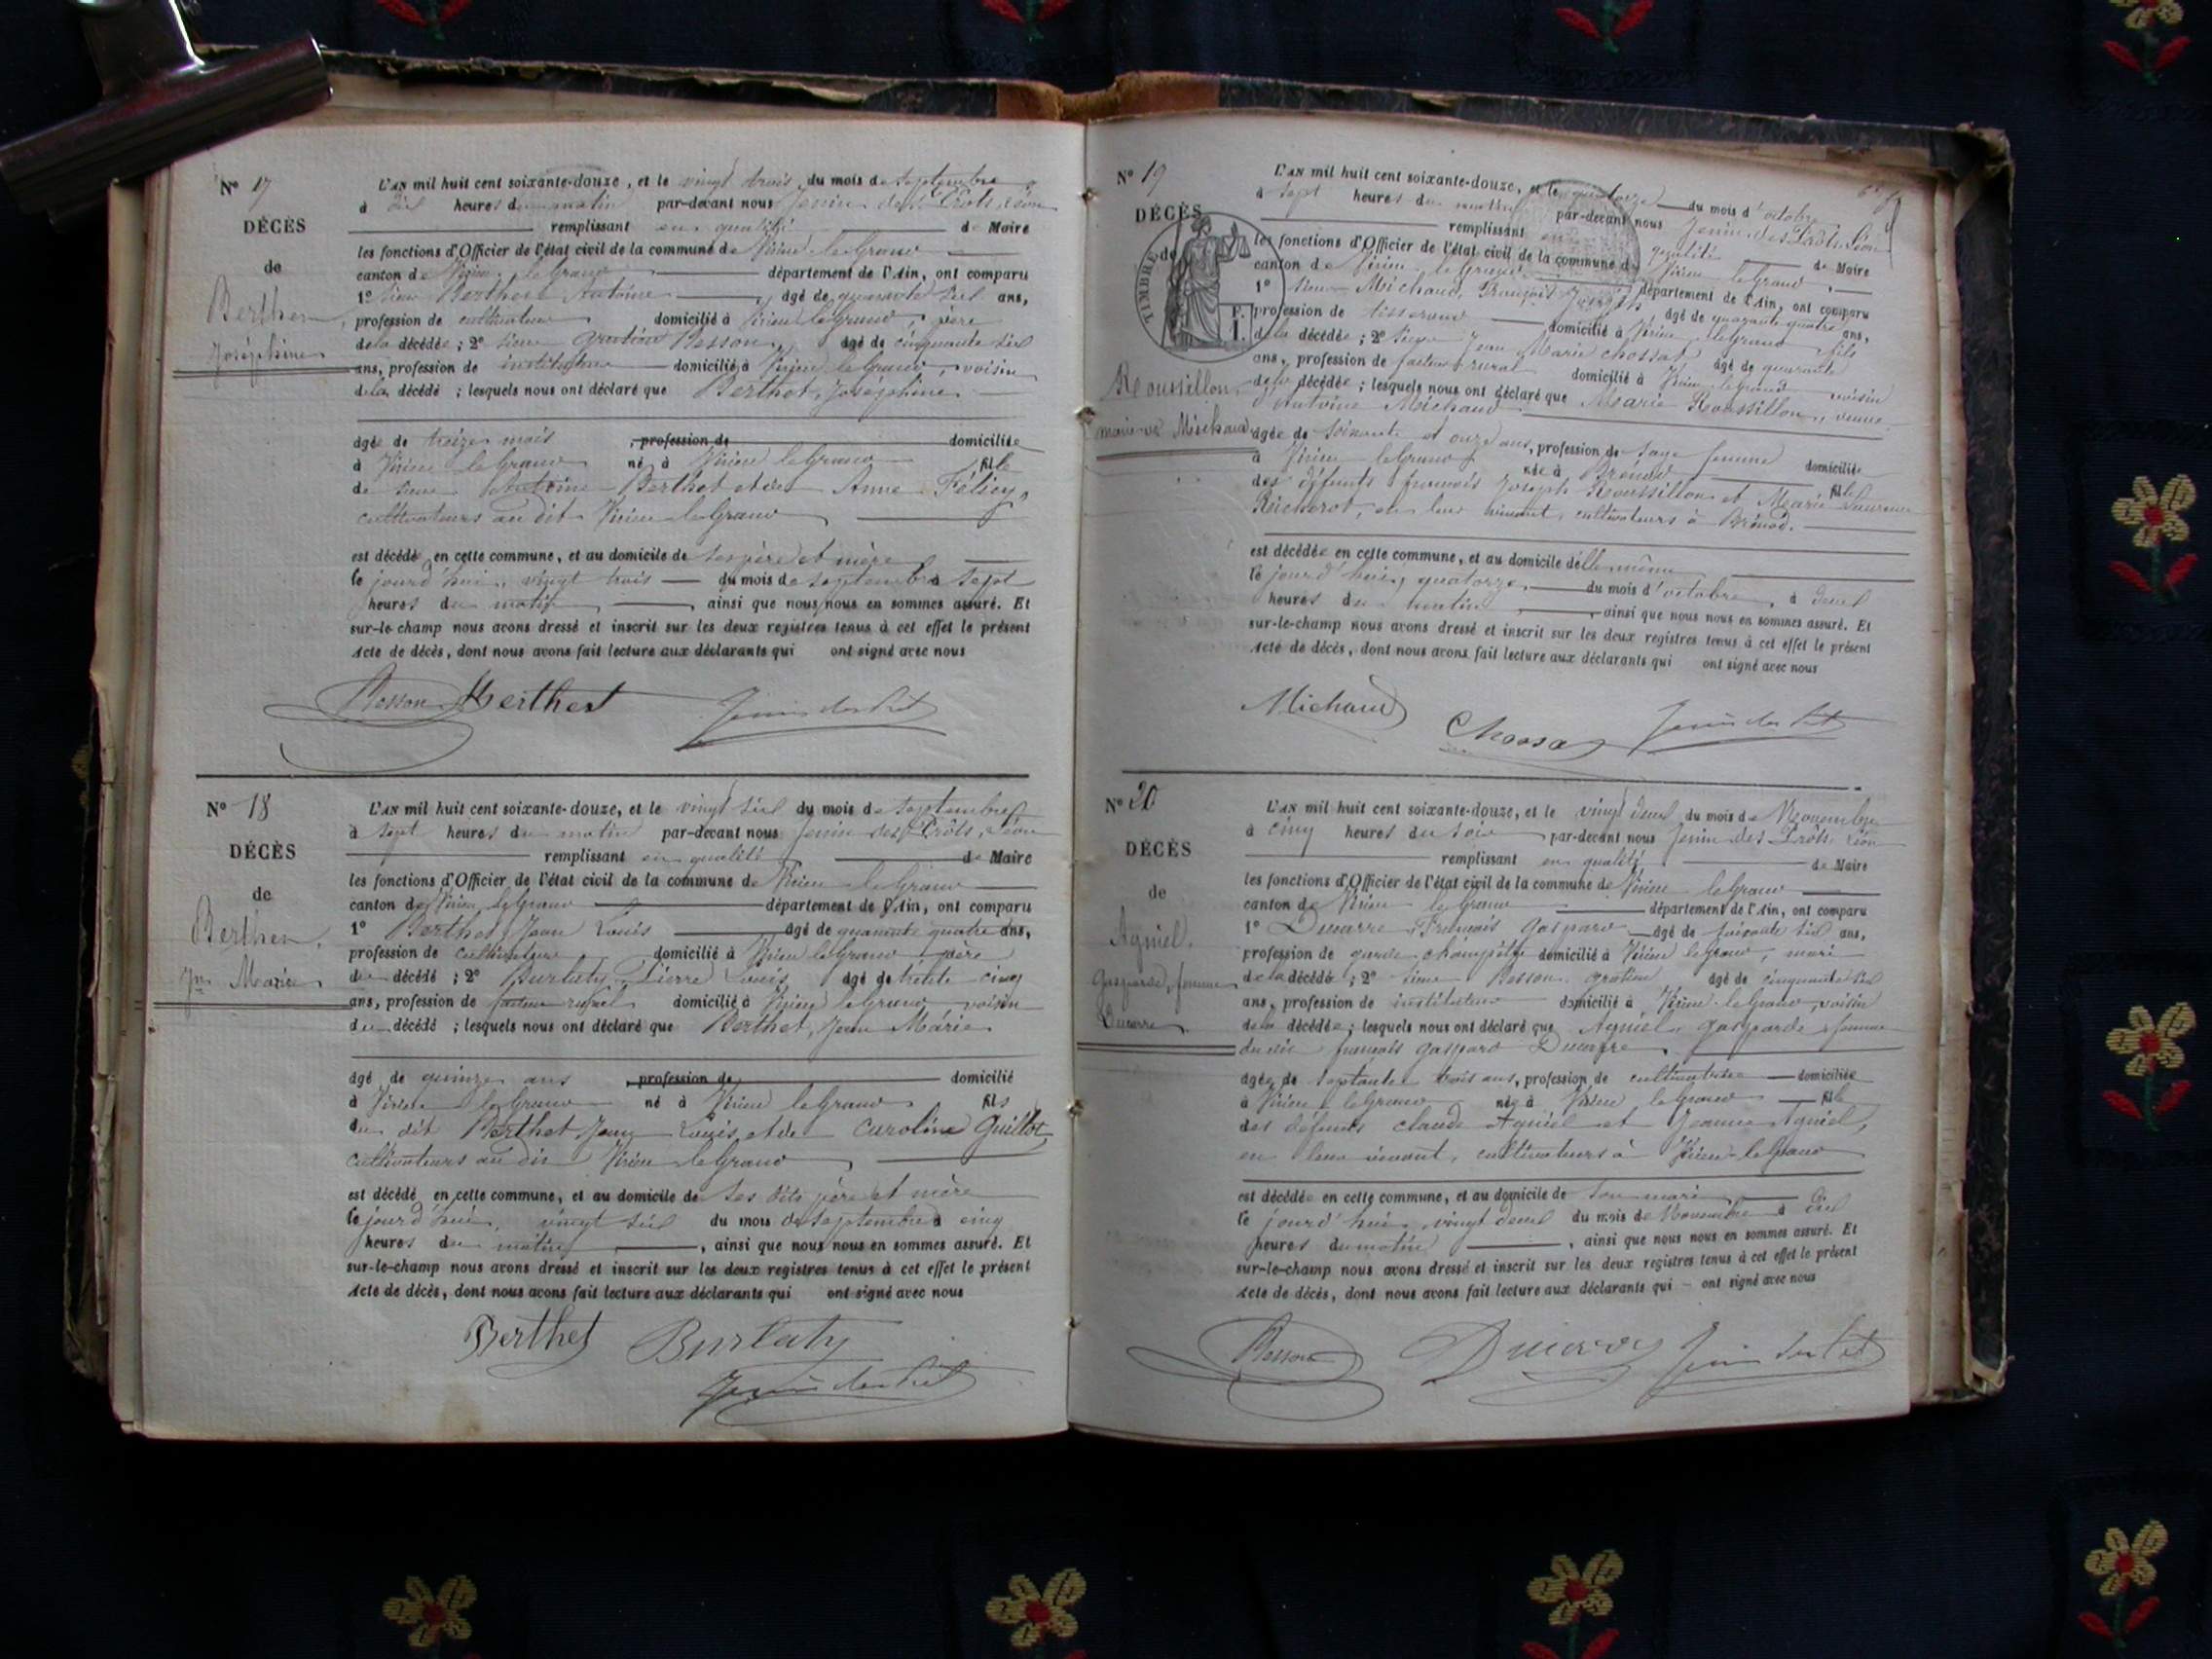 N° 17
DÉCÈS
de
Berthet,
Joséphine
L'AN mil huit cent soixante-douze, et le vingt trois du mois de septembre
à dix heures du matin par-devant nous Jenin des Prôts, Léon
remplissant en qualité de Maire
les fonctions d'Officier de l'état civil de la commune de Virieu le Grand
canton de Virieu le Grand département de l'Ain, ont comparu
1° sieur Berthet Antoine âgé de quarante six ans,
profession de cultivateur domicilié à Virieu le Grand, père
de la décédée ; 2° sieur Gratien Besson, âgé de cinquante six
ans, profession de instituteur domicilié à Virieu le Grand, voisin
de la décédé ; lesquels nous ont déclaré que Berthet, Joséphine
âgée de treize mois profession de domiciliée
à Virieu le Grand né à Virieu le Grand fille
de sieur Antoine Berthet et de Anne Félicy,
cultivateurs au dit Virieu le Grand
est décédée en cette commune, et au domicile de ses père et mère
le jourd'hui, vingt trois du mois de septembre à sept
heures du matin, ainsi que nous nous en sommes assuré. Et
sur-le-champ nous avons dressé et inscrit sur les deux registres tenus à cet effet le présent
Acte de décès, dont nous avons fait lecture aux déclarants qui ont signé avec nous
Besson Berthet Jenin des Prôts
N° 18
DÉCÈS
de
Berthet,
Jn Marie
L'AN mil huit cent soixante-douze, et le vingt six du mois de septembre
à sept heures du matin par-devant nous Jenin des Prôts, Léon
remplissant en qualité de Maire
les fonctions d'Officier de l'état civil de la commune de Virieu le Grand
canton de Virieu le Grand département de l'Ain, ont comparu
1° Berthet, Jean Louis âgé de quarante quatre ans,
profession de cultivateur domicilié à Virieu le Grand père
du décédé ; 2° Burlaty, Pierre Louis, âgé de trente cinq
ans, profession de facteur rural domicilié à Virieu le Grand voisin
du décédé ; lesquels nous ont déclaré que Berthet, Jean Marie
âgé de quinze ans profession de domicilié
à Virieu le Grand né à Virieu le Grand fils
du dit Berthet Jean Louis, et de Caroline Guillot,
cultivateurs au dit Virieu le Grand
est décédé en cette commune, et au domicile de ses dits père et mère
le jourd'hui, vingt six du mois de septembre à cinq
heures du matin, ainsi que nous nous en sommes assuré. Et
sur-le-champ nous avons dressé et inscrit sur les deux registres tenus à cet effet le présent
Acte de décès, dont nous avons fait lecture aux déclarants qui ont signé avec nous
Berthet Burlaty
Jenin des Prôts
N° 19
DÉCÈS
de
TIMBRE
Roussillon,
marie ve Michaud
L'AN mil huit cent soixante-douze, et le quatorze du mois d'octobre
à sept heures du matin par-devant nous Jenin des Prôts Léon
remplissant en qualité de Maire
les fonctions d'Officier de l'état civil de la commune de Virieu le Grand
canton de Virieu le Grand département de l'Ain, ont comparu
1° sieur Michaud, François Joseph âgé de quarante quatre ans,
profession de tisserand domicilié à Virieu le Grand fils
de la décédée ; 2° sieur Jean Marie Chossat âgé de quarante
ans, profession de facteur rural domicilié à Virieu le Grand voisin
de la décédée ; lesquels nous ont déclaré que Marie Roussillon, veuve
Antoine Michaud
âgée de soixante et onze ans, profession de sage femme domiciliée
à Virieu le Grand née à Brénod fille
des défunts françois Joseph Roussillon et Marie Laurence
en leur vivant, cultivateurs à Brénod.
est décédée en cette commune, et au domicile d'elle même
le jourd'hui, quatorze, du mois d'octobre, à deux
heures du matin, ainsi que nous nous en sommes assuré. Et
sur-le-champ nous avons dressé et inscrit sur les deux registres tenus à cet effet le présent
Acte de décès, dont nous avons fait lecture aux déclarants qui ont signé avec nous
Michaud Chossat Jenin des Prôts
N° 20
DÉCÈS
de
Agniel,
Gasparde, femme
Ducarre
L'AN mil huit cent soixante-douze, et le vingt deux du mois de Novembre
à cinq heures du soir par-devant nous Jenin des Prôts Léon
remplissant en qualité de Maire
les fonctions d'Officier de l'état civil de la commune de Virieu le Grand
canton de Virieu le Grand département de l'Ain, ont comparu
1° Ducarre, François Gaspard âgé de soixante six ans,
profession de garde champêtre domicilié à Virieu le Grand, mari
de la décédée ; 2° sieur Besson Gratien âgé de cinquante six
ans, profession de instituteur domicilié à Virieu le Grand, voisin
de la décédée ; lesquels nous ont déclaré que Agniel, Gasparde, femme
du dit françois Gaspard Ducarre
âgée de septante trois ans, profession de cultivatrice domiciliée
à Virieu le Grand née à Virieu le Grand fille
des défunts Claude Agniel et Jeanne Agniel,
en leur vivant, cultivateurs à Virieu-le-Grand
est décédée en cette commune, et au domicile de son mari
le jourd'hui, vingt deux du mois de Novembre à dix
heures du matin, ainsi que nous nous en sommes assuré. Et
sur-le-champ nous avons dressé et inscrit sur les deux registres tenus à cet effet le présent
Acte de décès, dont nous avons fait lecture aux déclarants qui ont signé avec nous
Besson Ducarre Jenin des Prôts